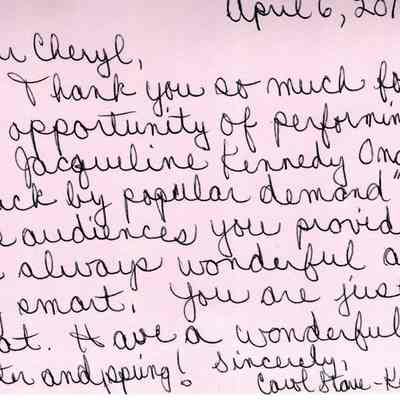 April 6, 201
r Cheryl,
Thank you so much fo
opportunity of performin
Jacqueline Kennedy Ona
ack by popular demand"
e audiences you provid
always wonderful a
smart. You are jus
at. Have a wonderful
ter andpping! Sincerely,
Carol Stave-K